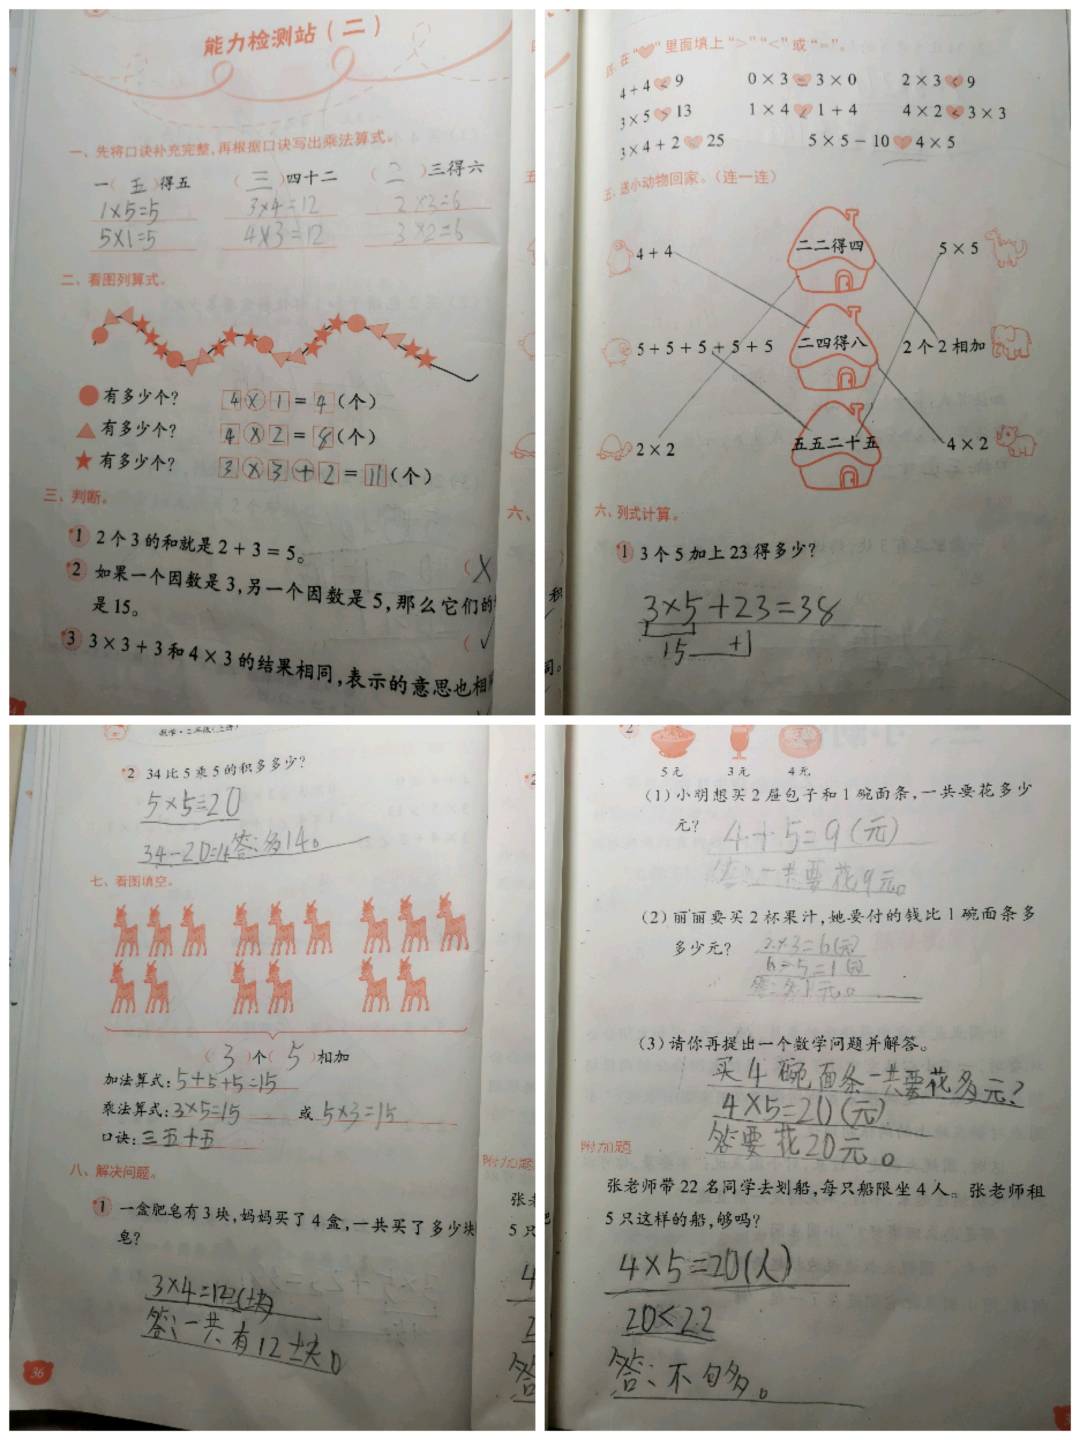 能力检测站（二）
一、先将口诀补充完整,再根据口诀写出乘法算式。
一（五）得五 （三）四十二 （二）三得六
1×5=5 3×4=12 2×3=6
5×1=5 4×3=12 3×2=6
二、看图列算式。
有多少个? 4×1=4(个)
有多少个? 4×2=8(个)
有多少个? 3×3+2=11(个)
三、判断。
1 2个3的和就是2+3=5。
(×
2 如果一个因数是3,另一个因数是5,那么它们的
是15。
(✓
3 3×3+3和4×3的结果相同,表示的意思也相
四、在“♥”里面填上“>”“<”或“=”。
4+4<9 0×3=3×0 2×3<9
3×5>13 1×4<1+4 4×2<3×3
3×4+2♥25 5×5-10♥4×5
五、送小动物回家。(连一连)
4+4 二二得四 5×5
5+5+5+5+5 二四得八 2个2相加
2×2 五五二十五 4×2
六、列式计算。
1 3个5加上23得多少?
3×5+23=38
15
2 34比5乘5的积多多少?
5×5=20
34-20=14答:多14。
七、看图填空。
(3)个(5)相加
加法算式:5+5+5=15
乘法算式:3×5=15 或5×3=15
口诀:三五十五
八、解决问题。
1 一盒肥皂有3块,妈妈买了4盒,一共买了多少块
皂?
3×4=12(块)
答:一共有12块。
36
附加题
张老
5只
2
5元 3元 4元
(1)小明想买2屉包子和1碗面条,一共要花多少
元? 4+5=9(元)
答:一共要花9元。
(2)丽丽要买2杯果汁,她要付的钱比1碗面条多
多少元? 2×3=6(元)
6-5=1(元)
答:多1元。
(3)请你再提出一个数学问题并解答。
买4碗面条一共要花多元?
4×5=20(元)
答要花20元。
附加题
张老师带22名同学去划船,每只船限坐4人。张老师租
5只这样的船,够吗?
4×5=20(人)
20<22
答:不够。